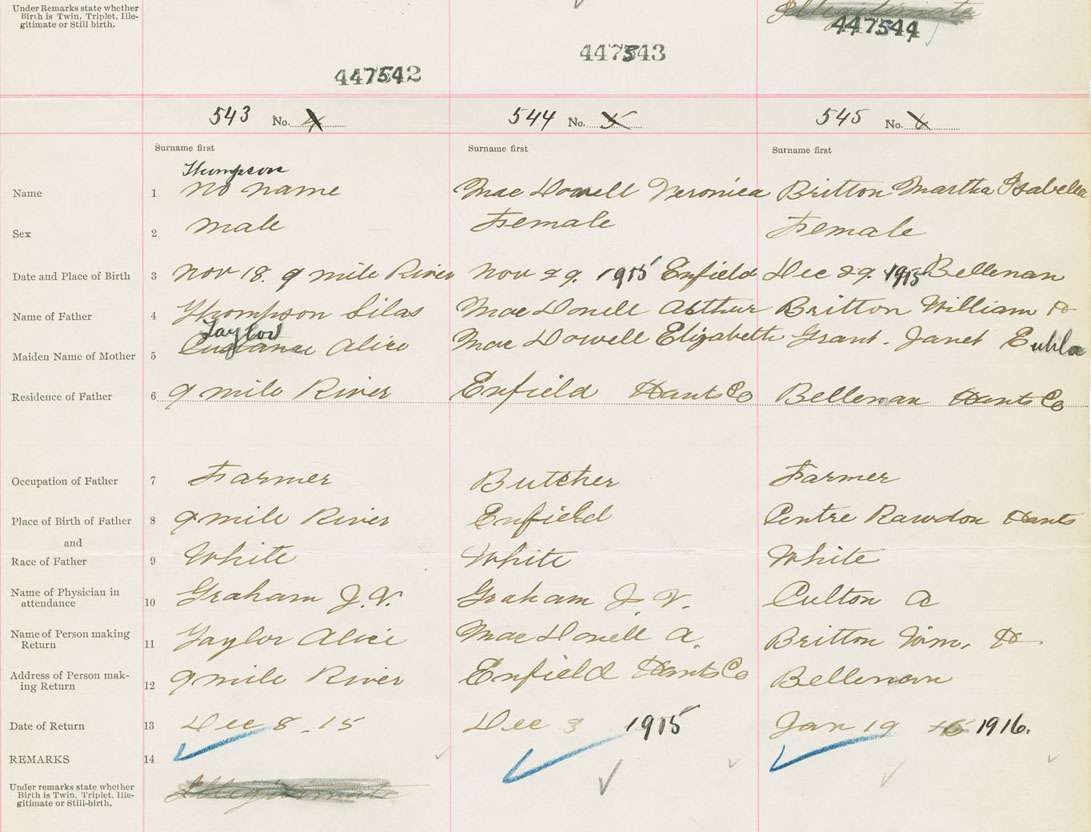 Under Remarks state whether
Birth is Twin, Triplet, Ille-
gitimate or Still birth.
Illegitimate
447544
447543
447542
543 No. 4 544 No. 5 545 No. 6
Surname first Surname first Surname first
Thompson
Name 1 No name Mac Dowell Veronica Britton Martha Isabella
Sex 2 Male Female Female
Date and Place of Birth 3 Nov 18. 9 mile River Nov 29. 1915 Enfield Dec 29. 1915 Bellenan
Name of Father 4 Thompson Silas Mac Donell Arthur Britton William H
Taylor
Maiden Name of Mother 5 Alice Mac Dowell Elizabeth Grant. Janet
Residence of Father 6 9 mile River Enfield Hants Co Bellenan Hants Co
Occupation of Father 7 Farmer Butcher Farmer
Place of Birth of Father 8 9 mile River Enfield Centre Rawdon Hants
and
Race of Father 9 White White White
Name of Physician in
attendance 10 Graham J. V. Graham J. V. Culton A
Name of Person making
Return 11 Taylor Alice Mac Donell A. Britton Wm. H
Address of Person mak-
ing Return 12 9 mile River Enfield Hants Co Bellenan
Date of Return 13 Dec 8. 15 Dec 3 1915 Jan 19 16 1916.
REMARKS 14
Under remarks state whether
Birth is Twin, Triplet, Ille-
gitimate or Still-birth.
Illegitimate